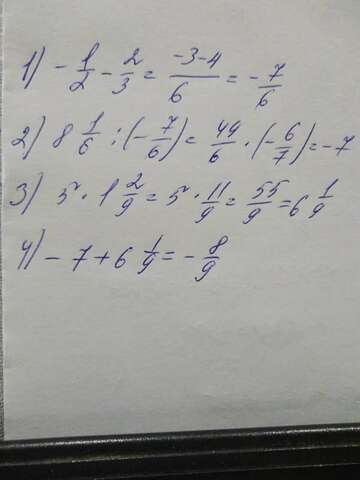 1) - 1/2 - 2/3 = (-3-4)/6 = - 7/6
2) 8 1/6 : (- 7/6) = 49/6 · (- 6/7) = -7
3) 5 · 1 2/9 = 5 · 11/9 = 55/9 = 6 1/9
4) - 7 + 6 1/9 = - 8/9